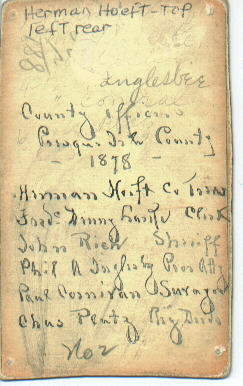 Herman Hoeft - Top
left rear
Inglesbee
County Officers
Presque Isle County
- 1878 -
Herman Hoift Co Treas
Fredc Denny Clerk
John Rich Sheriff
Phil A Inglesby Pros Atty
Paul Cosnivan Survayor
Chas Platz Reg Deeds
No 2